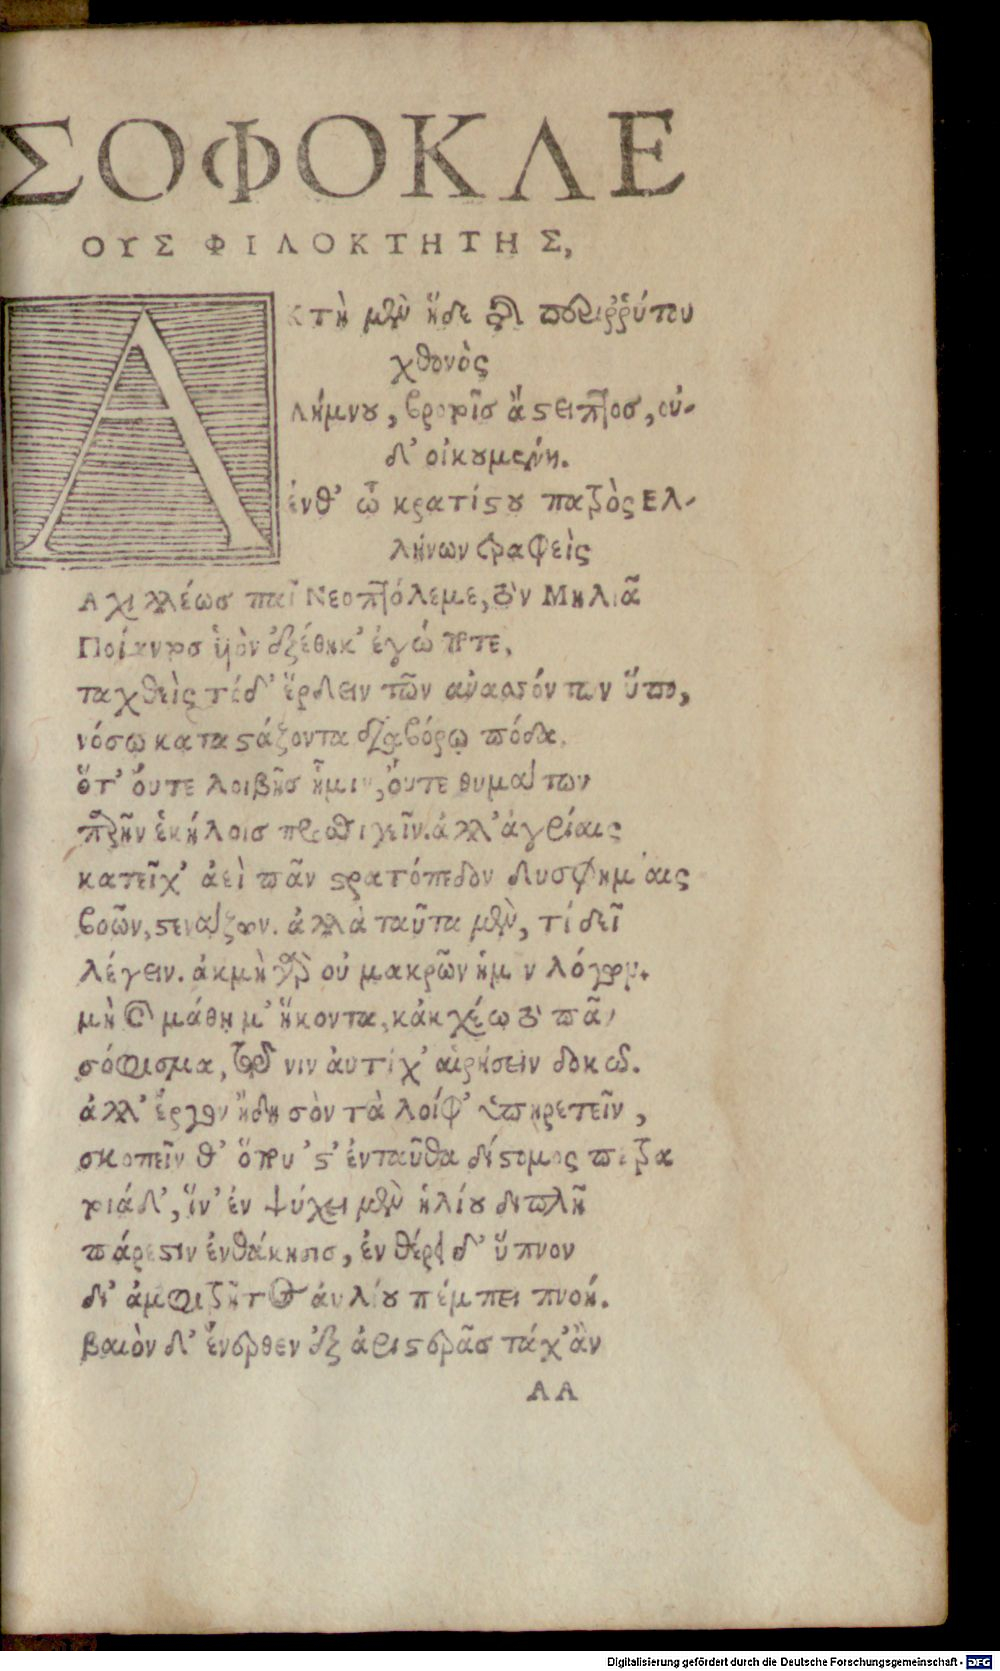 ΣΟΦΟΚΛΕ
ΟΥΣ ΦΙΛΟΚΤΗΤΗΣ,
ΑΚΤὴ μὲν ἥδε τῆς περιῤῥύτου
χθονὸς
Λήμνου, βροτοῖσ ἄστειπτοσ, οὐ-
δ' οἰκουμένη.
ἐνθ' ὦ κρατίστου παβὸς Ελ-
λήνων τραφεὶς
Αχιλλέωσ παῖ Νεοπτόλεμε, τὸν Μηλιᾶ
Ποίαντοσ ὑὸν ἐξέθηκ' ἐγώ ποτε,
ταχθεὶς τόδ' ἕρδειν τῶν ἀνασσόντων ὕπο,
νόσῳ καταστάζοντα διαβόρῳ πόδα.
ὅτ' ὄυτε λοιβῆσ ἦμιν, ὄυτε θυμάτων
παρῆν ἑκήλοισ προσθιγεῖν. ἀλλ' ἀγρίαις
κατεῖχ' ἀεὶ πᾶν στρατόπεδον δυσφημίαις
βοῶν, στενάζων. ἀλλὰ ταῦτα μὲν, τί δεῖ
λέγειν. ἀκμὴ γὰρ οὐ μακρῶν ἡμῖν λόγων.
μὴ καὶ μάθῃ μ' ἥκοντα, κἀκχέω τὸ πᾶν
σόφισμα, τῷ νιν ἀυτίχ' αἱρήσειν δοκῶ.
ἀλλ' ἔργον ἤδη σὸν τὰ λοίφ' ὑπηρετεῖν,
σκοπεῖν θ' ὅπου 'στ' ἐνταῦθα δίστομος πέτρα
τοιάδ', ἵν' ἐν ψύχει μὲν ἡλίου διπλῆ
πάρεστιν ἐνθάκησισ, ἐν θέρει δ' ὕπνον
δι' ἀμφιτρῆτος ἀυλίου πέμπει πνοή.
βαιὸν δ' ἔνερθεν ἐξ ἀριστερᾶσ τάχ' ἂν
ΑΑ
Digitalisierung gefördert durch die Deutsche Forschungsgemeinschaft - DFG